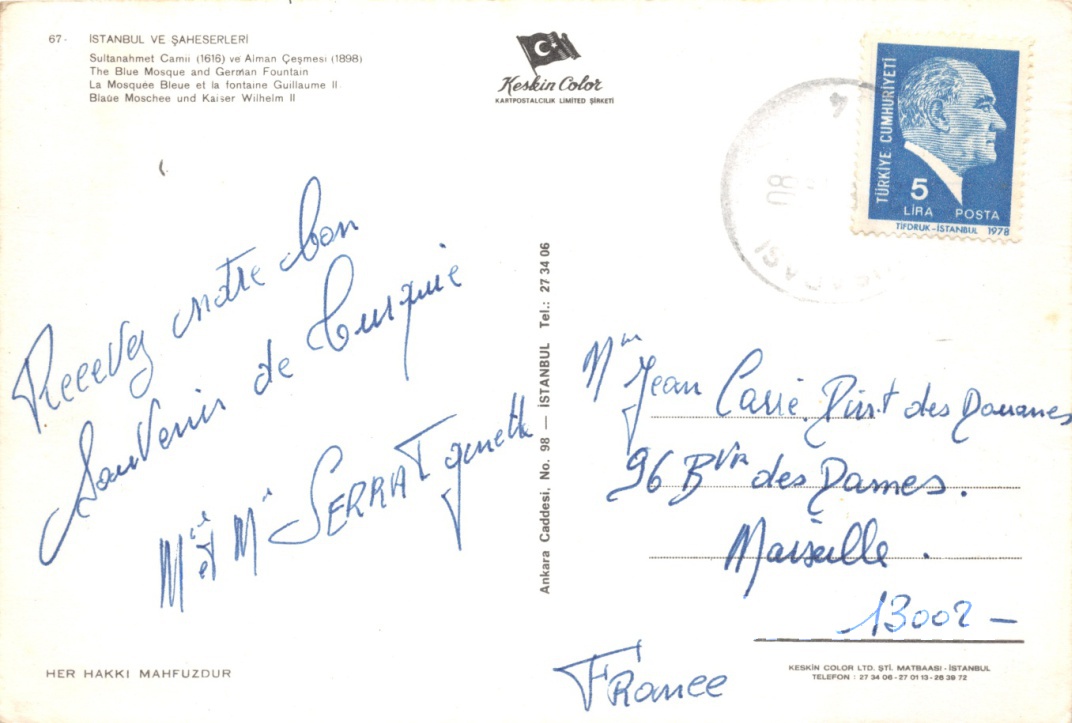 67- İSTANBUL VE ŞAHESERLERİ
Sultanahmet Camii (1616) ve Alman Çeşmesi (1898)
The Blue Mosque and German Fountain
La Mosquée Bleue et la fontaine Guillaume II
Blaue Moschee und Kaiser Wilhelm II
Keskin Color
KARTPOSTALCILIK LIMITED ŞİRKETİ
TÜRKİYE CUMHURİYETİ
5
LİRA POSTA
TİFDRUK-İSTANBUL 1978
4
08
Recevez notre bon
Souvenir de Turquie
Mel et Mr SERRAT
Ankara Caddesi, No. 98 — İSTANBUL Tel.: 27 34 06
Jean des Douanes
96 Bvr des Dames.
Marseille.
13002 -
France
HER HAKKI MAHFUZDUR
KESKİN COLOR LTD. ŞTİ. MATBAASI - İSTANBUL
TELEFON : 27 34 06 - 27 01 13 - 28 39 72